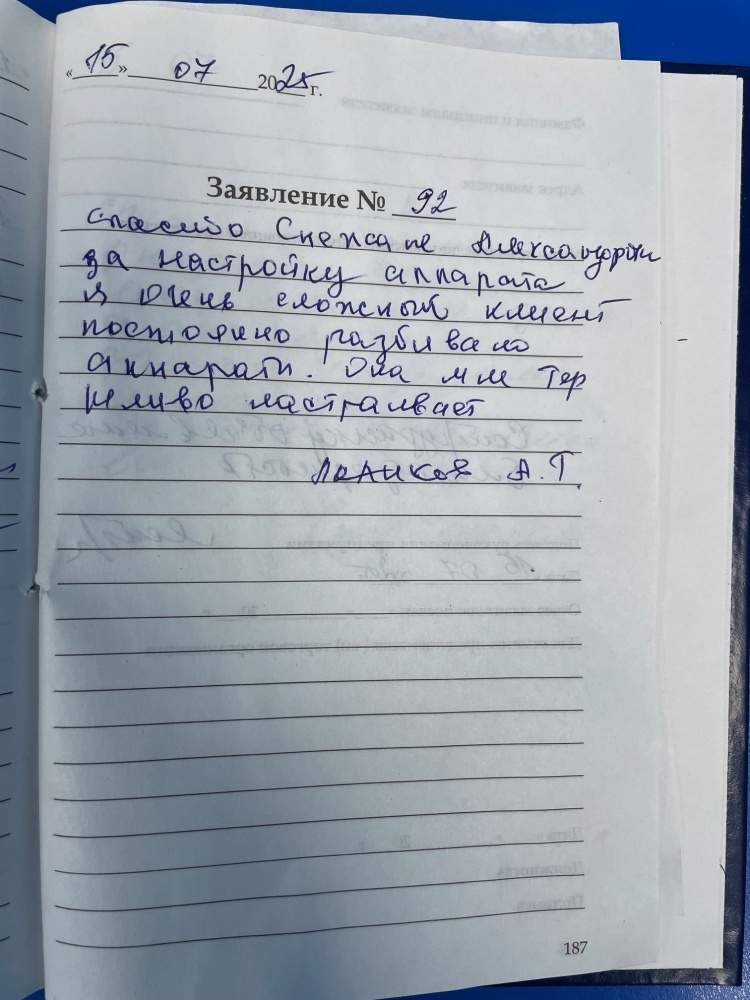 «15» 07 2025 г.
Заявление № 92
Спасибо Снежане Александровне
за настройку аппарата
я очень сложный клиент
постоянно разбиваю
аппараты. Она мне тер
пеливо настраивает
А.Г.
187